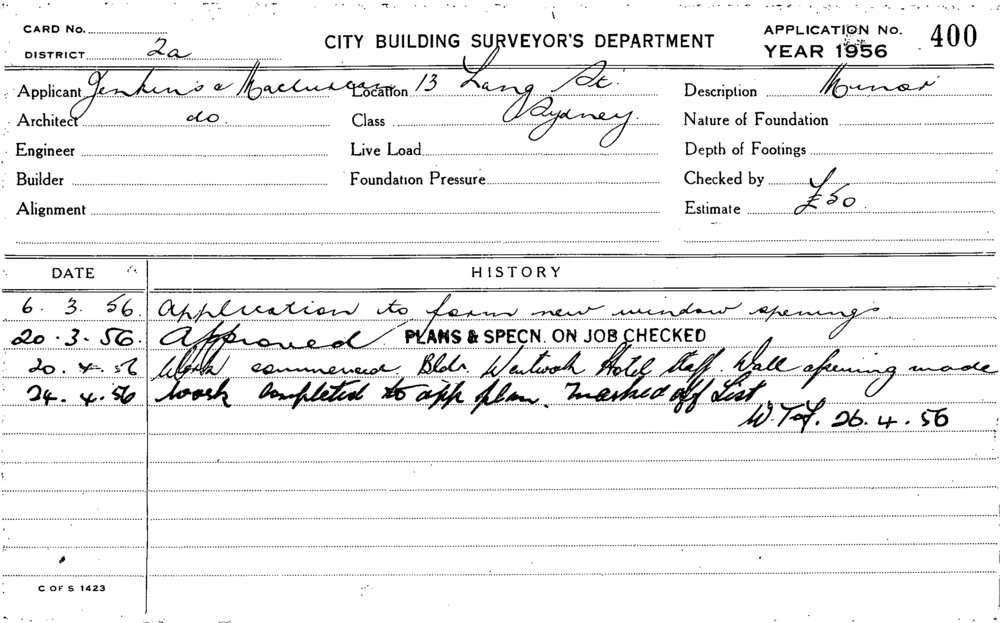 CARD No.
DISTRICT 2a
CITY BUILDING SURVEYOR'S DEPARTMENT
APPLICATION No. 400
YEAR 1956
Applicant Jenkins & Maclurcan Location 13 Lang St. Description Minor
Architect do. Class Sydney. Nature of Foundation
Engineer Live Load Depth of Footings
Builder Foundation Pressure Checked by
Alignment Estimate £50.
DATE HISTORY
6. 3. 56. Application to form new window openings.
20. 3. 56. Approved PLANS & SPECN. ON JOB CHECKED
20. 4. 56 Work commenced. Bldr. Hotel Staff. Wall opening made
24. 4. 56 Work completed to app plan. Marked off List
26. 4. 56
C OF S 1423